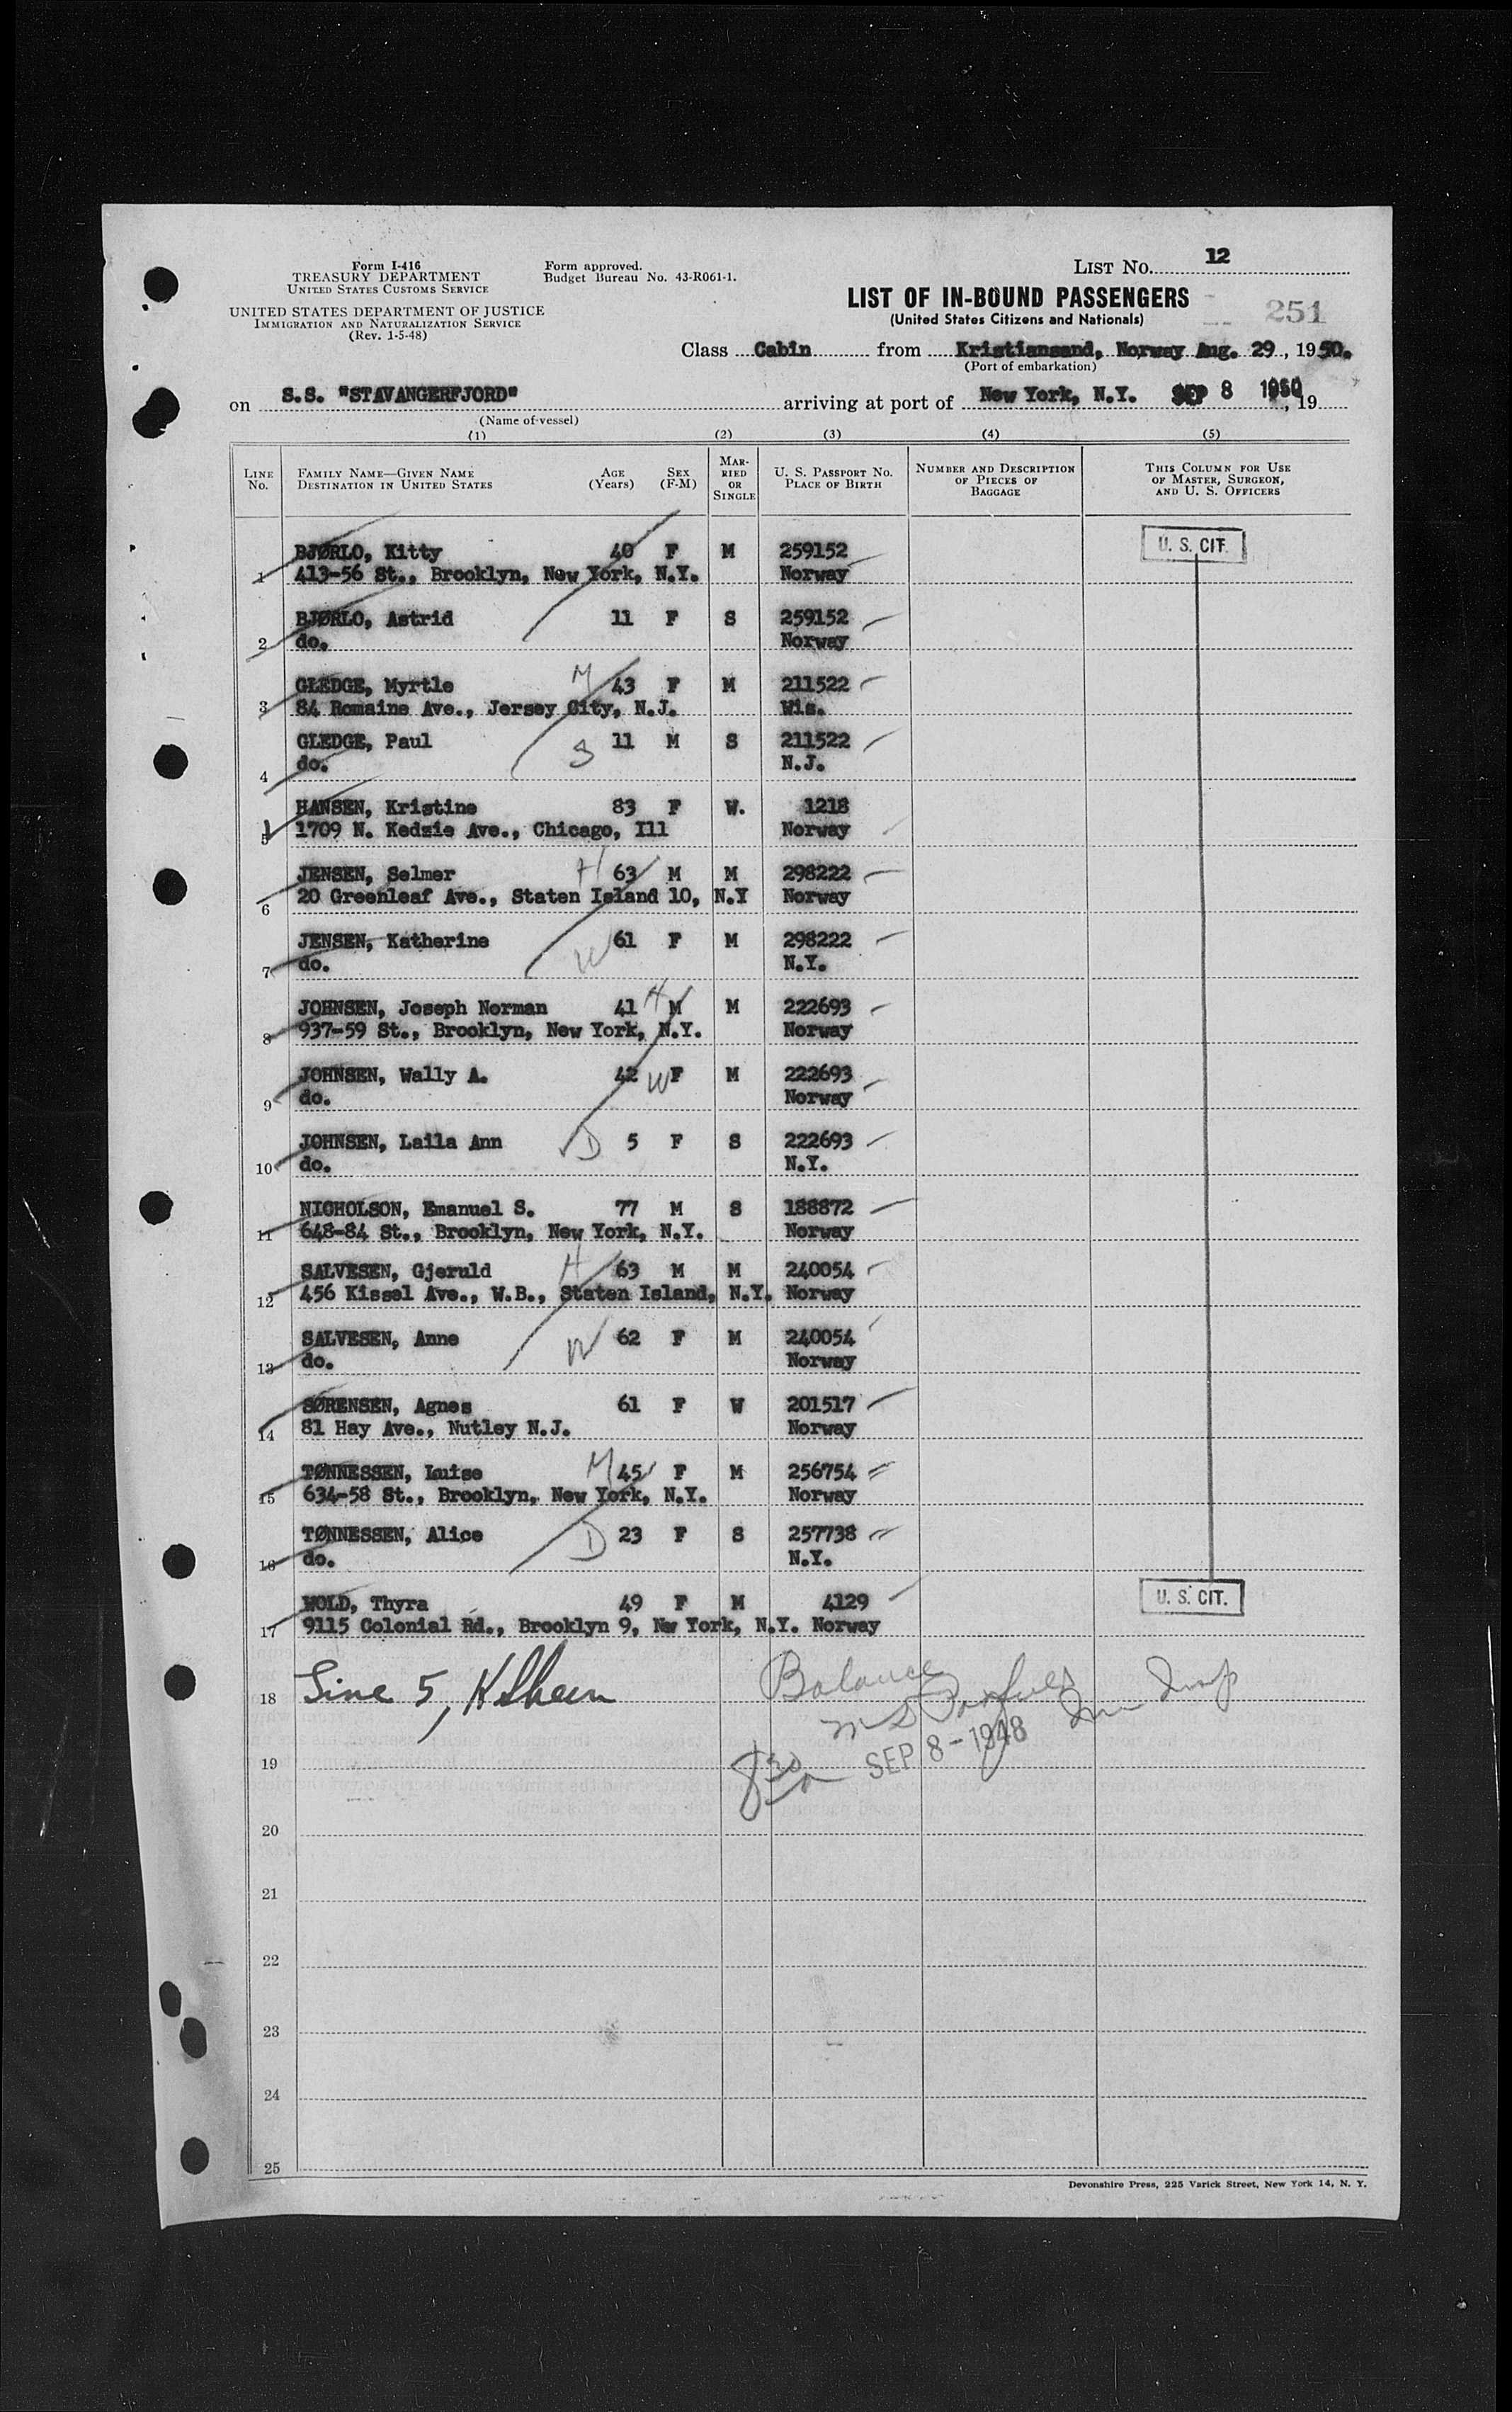 Form I-416
TREASURY DEPARTMENT
UNITED STATES CUSTOMS SERVICE
UNITED STATES DEPARTMENT OF JUSTICE
IMMIGRATION AND NATURALIZATION SERVICE
(Rev. 1-5-48)
Form approved.
Budget Bureau No. 43-R061-1.
LIST No. 12
LIST OF IN-BOUND PASSENGERS
(United States Citizens and Nationals)
251
Class Cabin from Kristiansand, Norway Aug. 29, 1950.
(Port of embarkation)
on S.S. "STAVANGERFJORD" arriving at port of New York, N.Y. SEP 8 1950, 19
(Name of vessel)
(1) (2) (3) (4) (5)
LINE No. FAMILY NAME—GIVEN NAME DESTINATION IN UNITED STATES AGE (Years) SEX (F-M) MARRIED OR SINGLE U. S. PASSPORT NO. PLACE OF BIRTH NUMBER AND DESCRIPTION OF PIECES OF BAGGAGE THIS COLUMN FOR USE OF MASTER, SURGEON, AND U. S. OFFICERS
BJØRLO, Kitty 40 F M 259152 U. S. CIT.
1 413-56 St., Brooklyn, New York, N.Y. Norway
BJØRLO, Astrid 11 F S 259152
2 do. Norway
GLEDGE, Myrtle M 43 F M 211522
3 84 Romaine Ave., Jersey City, N.J. Wis.
GLEDGE, Paul S 11 M S 211522
4 do. N.J.
HANSEN, Kristine 83 F W. 1218
5 1709 N. Kedzie Ave., Chicago, Ill Norway
JENSEN, Selmer H 63 M M 298222
6 20 Greenleaf Ave., Staten Island 10, N.Y Norway
JENSEN, Katherine W 61 F M 298222
7 do. N.Y.
JOHNSEN, Joseph Norman 41 H M M 222693
8 937-59 St., Brooklyn, New York, N.Y. Norway
JOHNSEN, Wally A. 42 W F M 222693
9 do. Norway
JOHNSEN, Laila Ann D 5 F S 222693
10 do. N.Y.
NICHOLSON, Emanuel S. 77 M S 188872
11 648-84 St., Brooklyn, New York, N.Y. Norway
SALVESEN, Gjeruld H 63 M M 240054
12 456 Kissel Ave., W.B., Staten Island, N.Y. Norway
SALVESEN, Anne W 62 F M 240054
13 do. Norway
SØRENSEN, Agnes 61 F W 201517
14 81 Hay Ave., Nutley N.J. Norway
TØNNESSEN, Luise M 45 F M 256754
15 634-58 St., Brooklyn, New York, N.Y. Norway
TØNNESSEN, Alice D 23 F S 257738
16 do. N.Y.
WOLD, Thyra 49 F M 4129 U. S. CIT.
17 9115 Colonial Rd., Brooklyn 9, Nw York, N.Y. Norway
18 Line 5, Balance
Insp
19 8 30 a SEP 8 - 1948
20
21
22
23
24
25
Devonshire Press, 225 Varick Street, New York 14, N. Y.